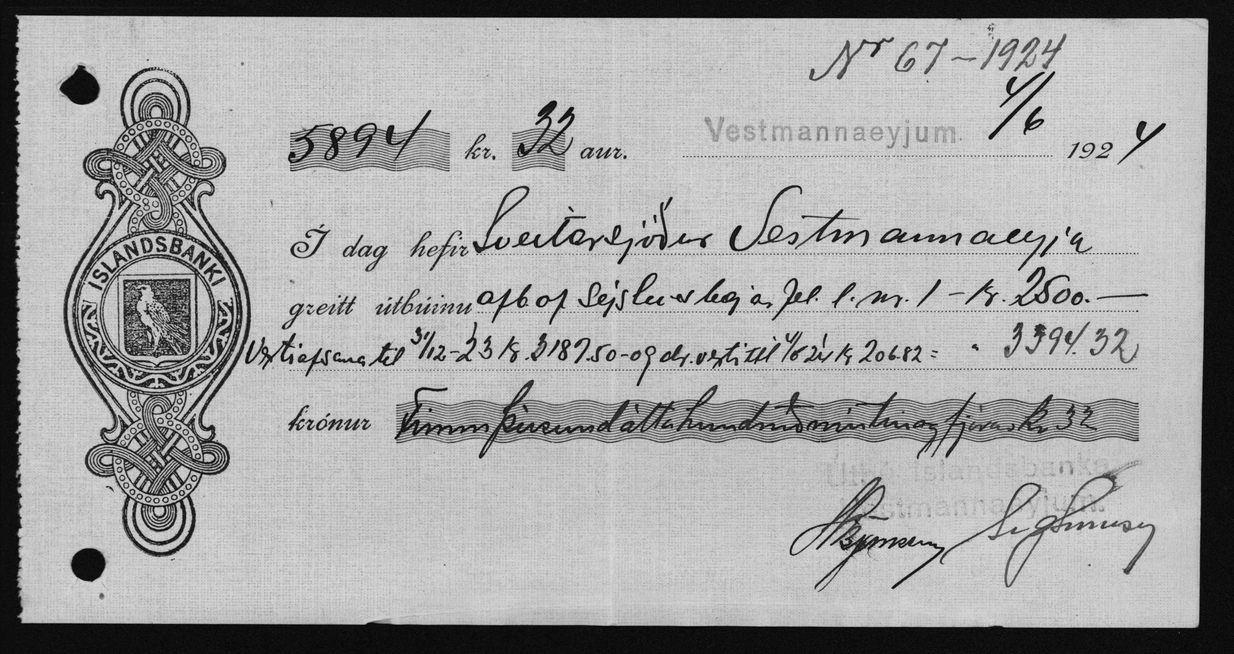 Nr 67 - 1924
5894 kr. 32 aur.
Vestmannaeyjum. 4/6 1924
ÍSLANDSBANKI
Í dag hefir Sveitarsjóður Vestmannaeyja
greitt útbúinu afb af l. nr. 1 - Kr. 2500.-
til 31/12-23 Kr. 3187.50 - og til 4/6 24 Kr 206.82 = " 3394.32
krónur Fimm þúsund átta hundruð níutíu og fjórar kr 32
Útbú Íslandsbanka
Vestmannaeyjum.